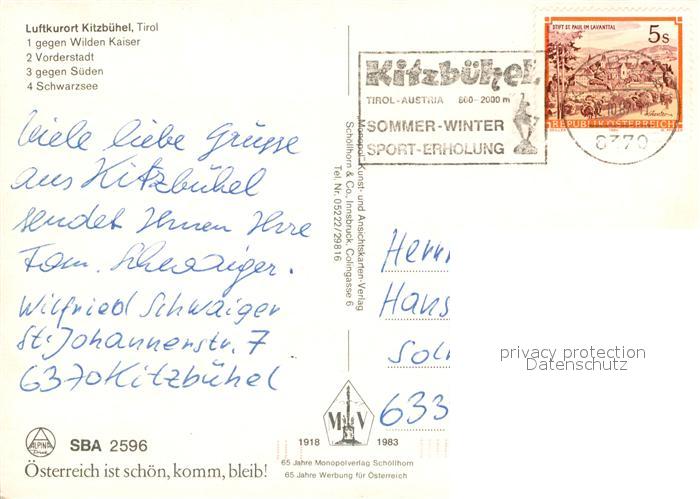 Luftkurort Kitzbühel, Tirol
1 gegen Wilden Kaiser
2 Vorderstadt
3 gegen Süden
4 Schwarzsee
Viele liebe Grüsse
aus Kitzbühel
sendet Ihnen Ihre
Fam. Schwaiger.
Wilfried Schwaiger
St. Johannerstr. 7
6370 Kitzbühel
ALPINA
SBA 2596
Österreich ist schön, komm, bleib!
„Monopol" Kunst- und Ansichtskarten-Verlag
Schöllhorn & Co., Innsbruck, Colingasse 6
Tel. Nr. 05222/29816
M V
1918 1983
65 Jahre Monopolverlag Schöllhorn
65 Jahre Werbung für Österreich
Kitzbühel
TIROL-AUSTRIA 800-2000 m
SOMMER-WINTER
SPORT-ERHOLUNG
STIFT ST. PAUL IM LAVANTTAL
5 S
REPUBLIK ÖSTERREICH
6370
Herrn
Hans
633
privacy protection
Datenschutz